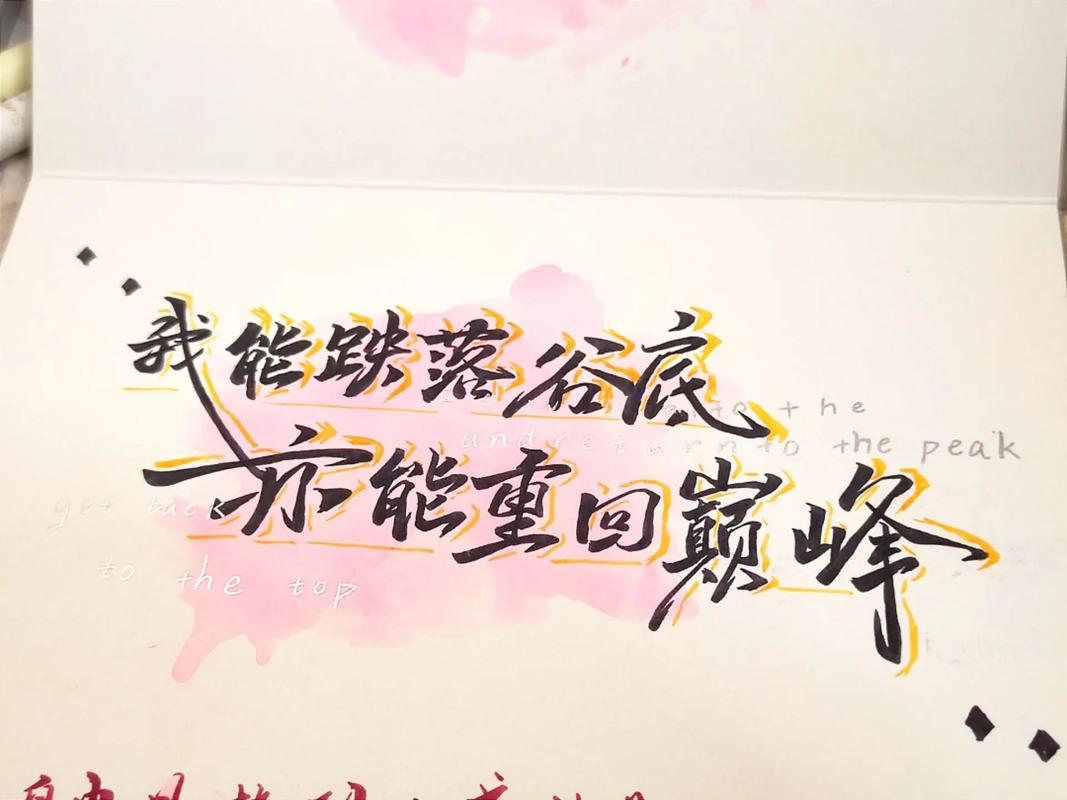 我能跌落谷底
to the
and return to the peak
亦能重回巅峰
get back
to the top